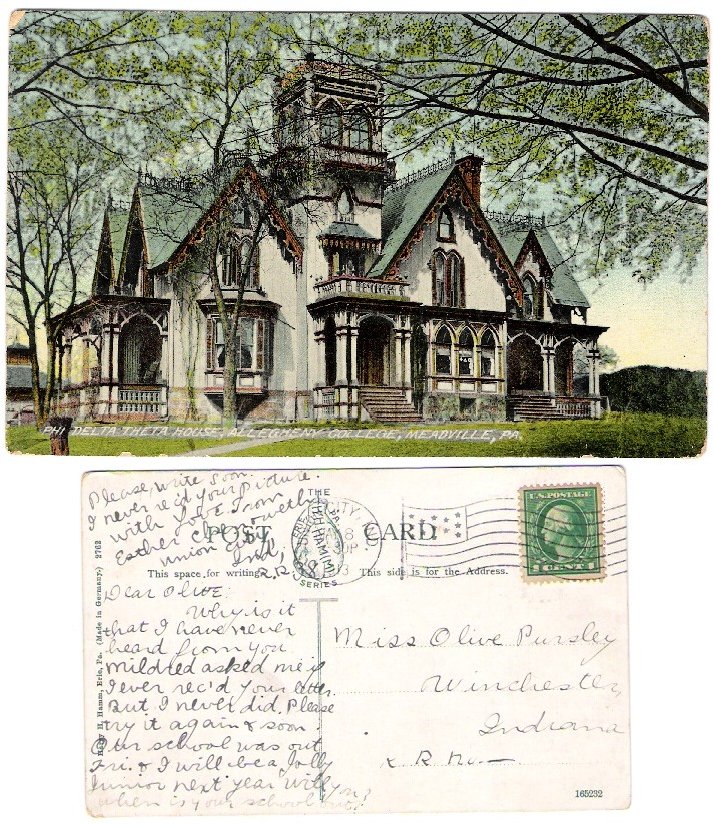 PHI DELTA THETA HOUSE, ALLEGHENY COLLEGE, MEADVILLE, PA.
Please, write soon.
I never rec'd your Picture.
With Love From
Esther
Union City,
Ind,
R.R.
THE
SERIES
POST CARD
This space for writing
This side is for the Address.
U.S. POSTAGE
1 CENT 1
Dear Olive:
Why is it
that I have never
heard from you
Mildred asked me if
I ever rec'd your letter
But I never did, Please
try it again & soon.
Our school was out
Fri. & I will be a Jolly
Junior next year Will you?
when is your school out?
Miss Olive Pursley
Winchester,
Indiana
R. R. No. —
Harry H. Hamm, Erie, Pa. (Made in Germany.) 2762
165232